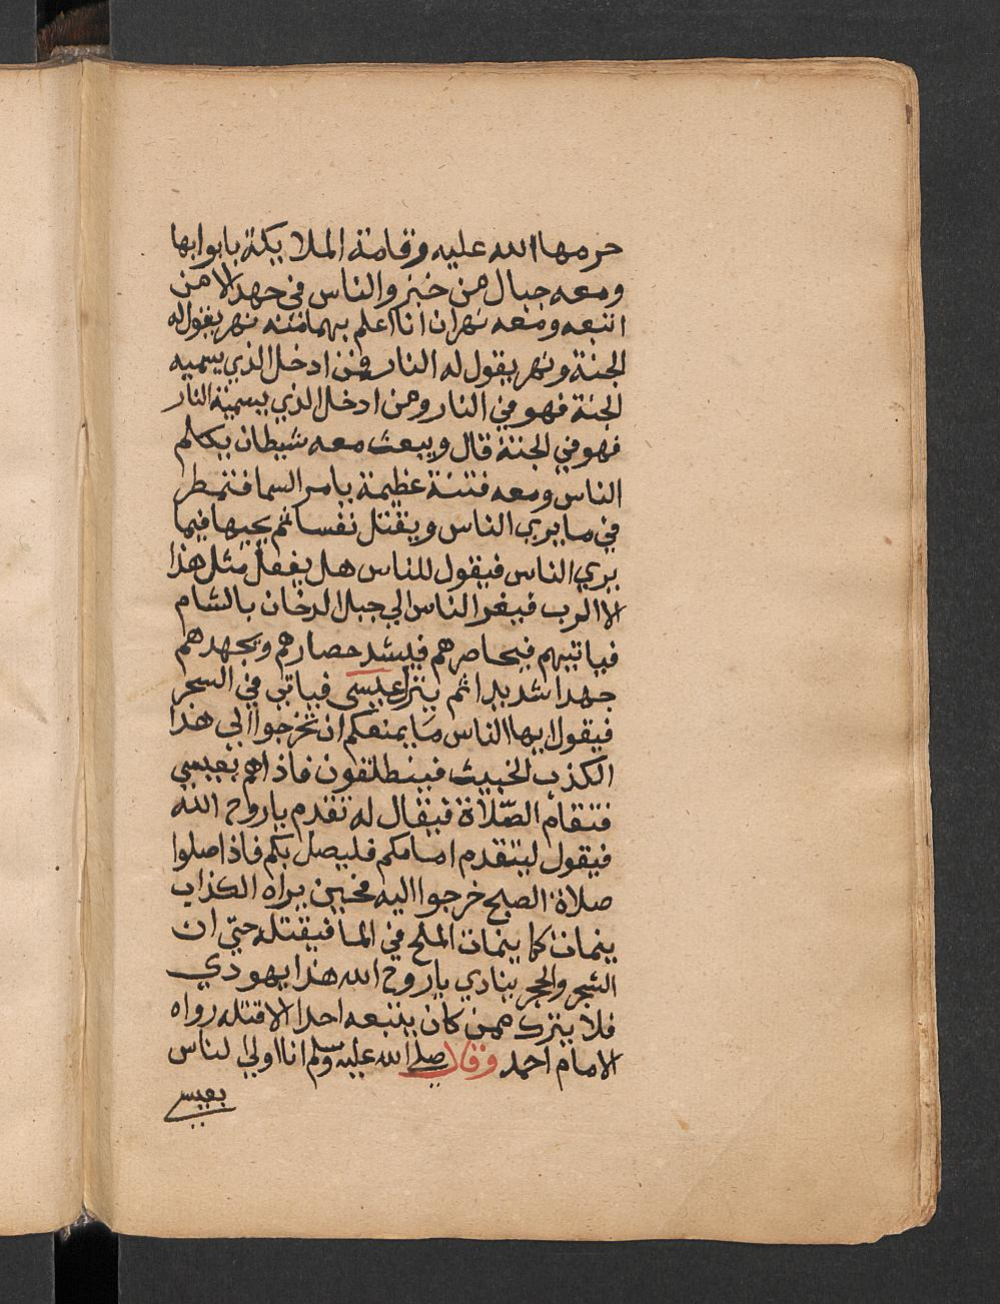 حرمها الله عليه وقامة الملايكة بابوابها
ومعه جبال من خبز والناس في جهد الا من
اتبعه ومعه نهران انا اعلم بهما منه نهر يقول له
الجنة ونهر يقول له النار فمن ادخل الذي يسميه
الجنة فهو في النار ومن ادخل الذي يسميه النار
فهو في الجنة قال ويبعث معه شيطان يكلم
الناس ومعه فتنة عظيمة يامر السما فتمطر
في ما يري الناس ويقتل نفسا ثم يحيها فيما
يري الناس فيقول للناس هل يفعل مثل هذا
الا الرب فيفر الناس الي جبل الدخان بالشام
فياتيهم فيحاصرهم فيشد حصارهم ويجهدهم
جهدا شديدا ثم ينزل عيسي فياتي في السحر
فيقول ايها الناس ما يمنعكم ان تخرجوا الي هذا
الكذب الخبيث فينطلقون فاذا هم بعيسي
فتقام الصّلاة فيقال له تقدم ياروح الله
فيقول ليتقدم امامكم فليصل بكم فاذا صلوا
صلاة الصبح خرجوا اليه فحين يراه الكذاب
ينماث كما ينماث الملح في الما فيقتله حتي ان
الشجر والحجر ينادي ياروح الله هذا يهودي
فلا يترك ممن كان يتبعه احدا الا قتله رواه
الامام احمد وقال صلي الله عليه وسلم انا اولي لناس
بعيسي